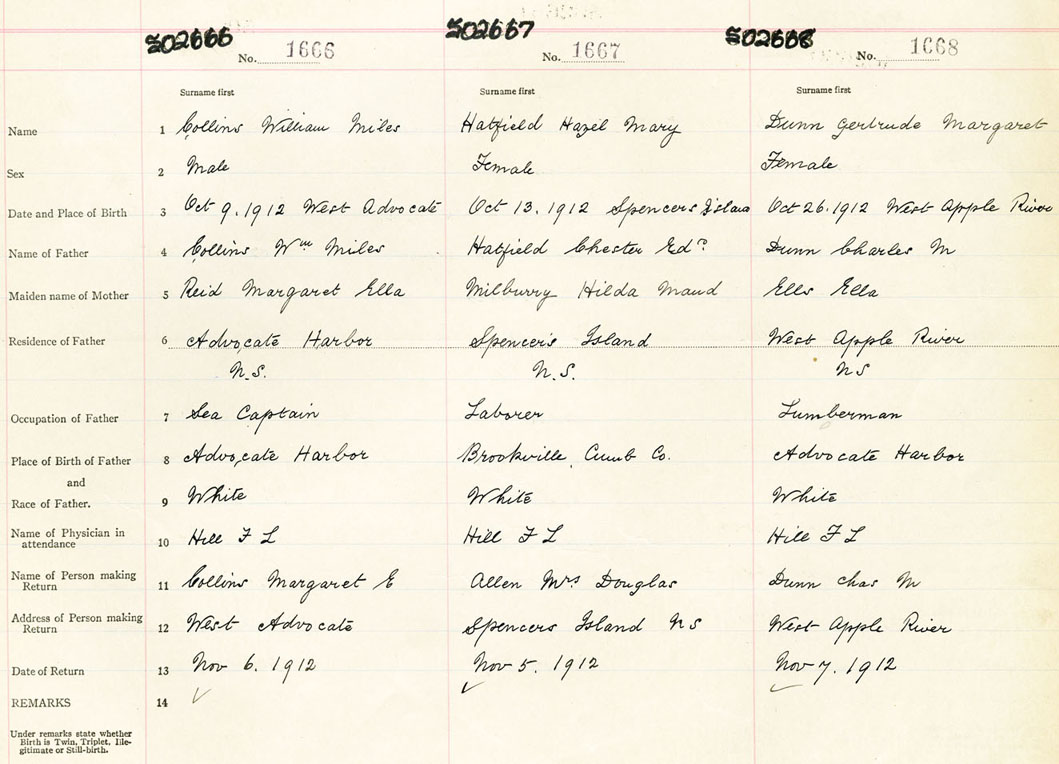 S02666 S02667 S02668
No. 1666 No. 1667 No. 1668
Surname first Surname first Surname first
Name 1 Collins William Miles Hatfield Hazel Mary Dunn Gertrude Margaret
Sex 2 Male Female Female
Date and Place of Birth 3 Oct 9. 1912 West Advocate Oct 13. 1912 Spencers Island Oct 26. 1912 West Apple River
Name of Father 4 Collins Wm Miles Hatfield Chester Edd Dunn Charles M
Maiden name of Mother 5 Reid Margaret Ella Milburry Hilda Maud Ells Ella
Residence of Father 6 Advocate Harbor Spencer's Island West Apple River
N.S. N.S. N S
Occupation of Father 7 Sea Captain Laborer Lumberman
Place of Birth of Father 8 Advocate Harbor Brookville, Cumb Co. Advocate Harbor
and
Race of Father. 9 White White White
Name of Physician in
attendance 10 Hill F L Hill F L Hill F L
Name of Person making
Return 11 Collins Margaret E Allen Mrs Douglas Dunn Chas M
Address of Person making
Return 12 West Advocate Spencers Island N S West Apple River
Date of Return 13 Nov 6. 1912 Nov 5. 1912 Nov 7. 1912
REMARKS 14
Under remarks state whether
Birth is Twin, Triplet, Ille-
gitimate or Still-birth.